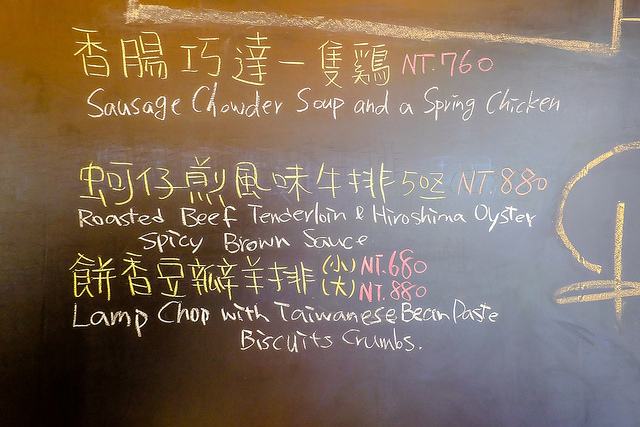 香腸巧達一隻鷄 NT.760
Sausage Chowder Soup and a Spring Chicken
蚵仔煎風味牛排5oz NT.880
Roasted Beef Tenderloin & Hiroshima Oyster
Spicy Brown Sauce
餅香豆瓣羊排 (小) NT.680
(大) NT.880
Lamp Chop with Taiwanese Bean Paste
Biscuits Crumbs.